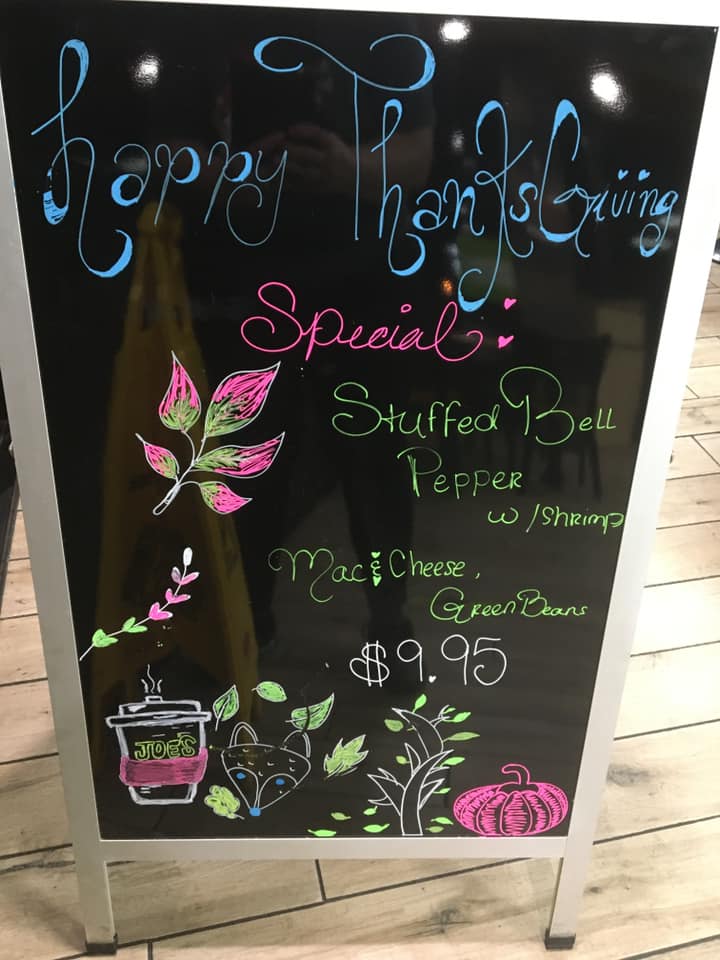 Happy ThanksGiving
Special:
Stuffed Bell
Pepper
w/Shrimp
Mac & Cheese,
Green Beans
$9.95
JOE'S